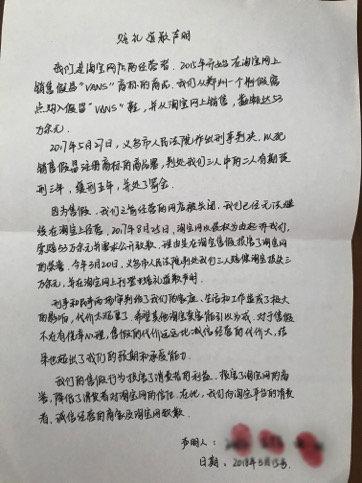 赔礼道歉声明
我们是淘宝网店的经营者。2015年开始在淘宝网上
销售假冒“VANS”商标的商品。我们从郑州一个制假窝
点购入假冒“VANS”鞋,并从淘宝网上销售,数额达53
万余元。
2017年5月27日,义乌市人民法院作出刑事判决,以犯
销售假冒注册商标的商品罪,判处我们三人中的二人有期徒
刑三年,缓刑五年,并处罚金。
因为售假,我们之前经营的网店被关闭,我们已经无法继
续在淘宝上经营。2017年8月25日,淘宝网以侵权为由起诉我们,
索赔53万元并要求公开致歉。理由是在淘宝售假损害了淘宝网
的荣誉。今年3月20日,义乌市人民法院判决我们三人赔偿淘宝损失三
万余元,并在淘宝网上刊登赔礼道歉声明。
刑事和民事两场审判给了我们的家庭、生活和工作造成了极大
的影响,代价太惨重了。希望其他淘宝卖家能引以为戒,对于售假
不存有侥幸心理,售假的代价远远比诚信经营的代价大,结
果也超出了我们的预期和承受能力。
我们的售假行为损害了消费者的利益,损害了淘宝网的商
誉,降低了消费者对淘宝网的信任。在此,我们向淘宝平台的消费
者、诚信经营的商家及淘宝网致歉。
声明人:
日期:2018年5月15号